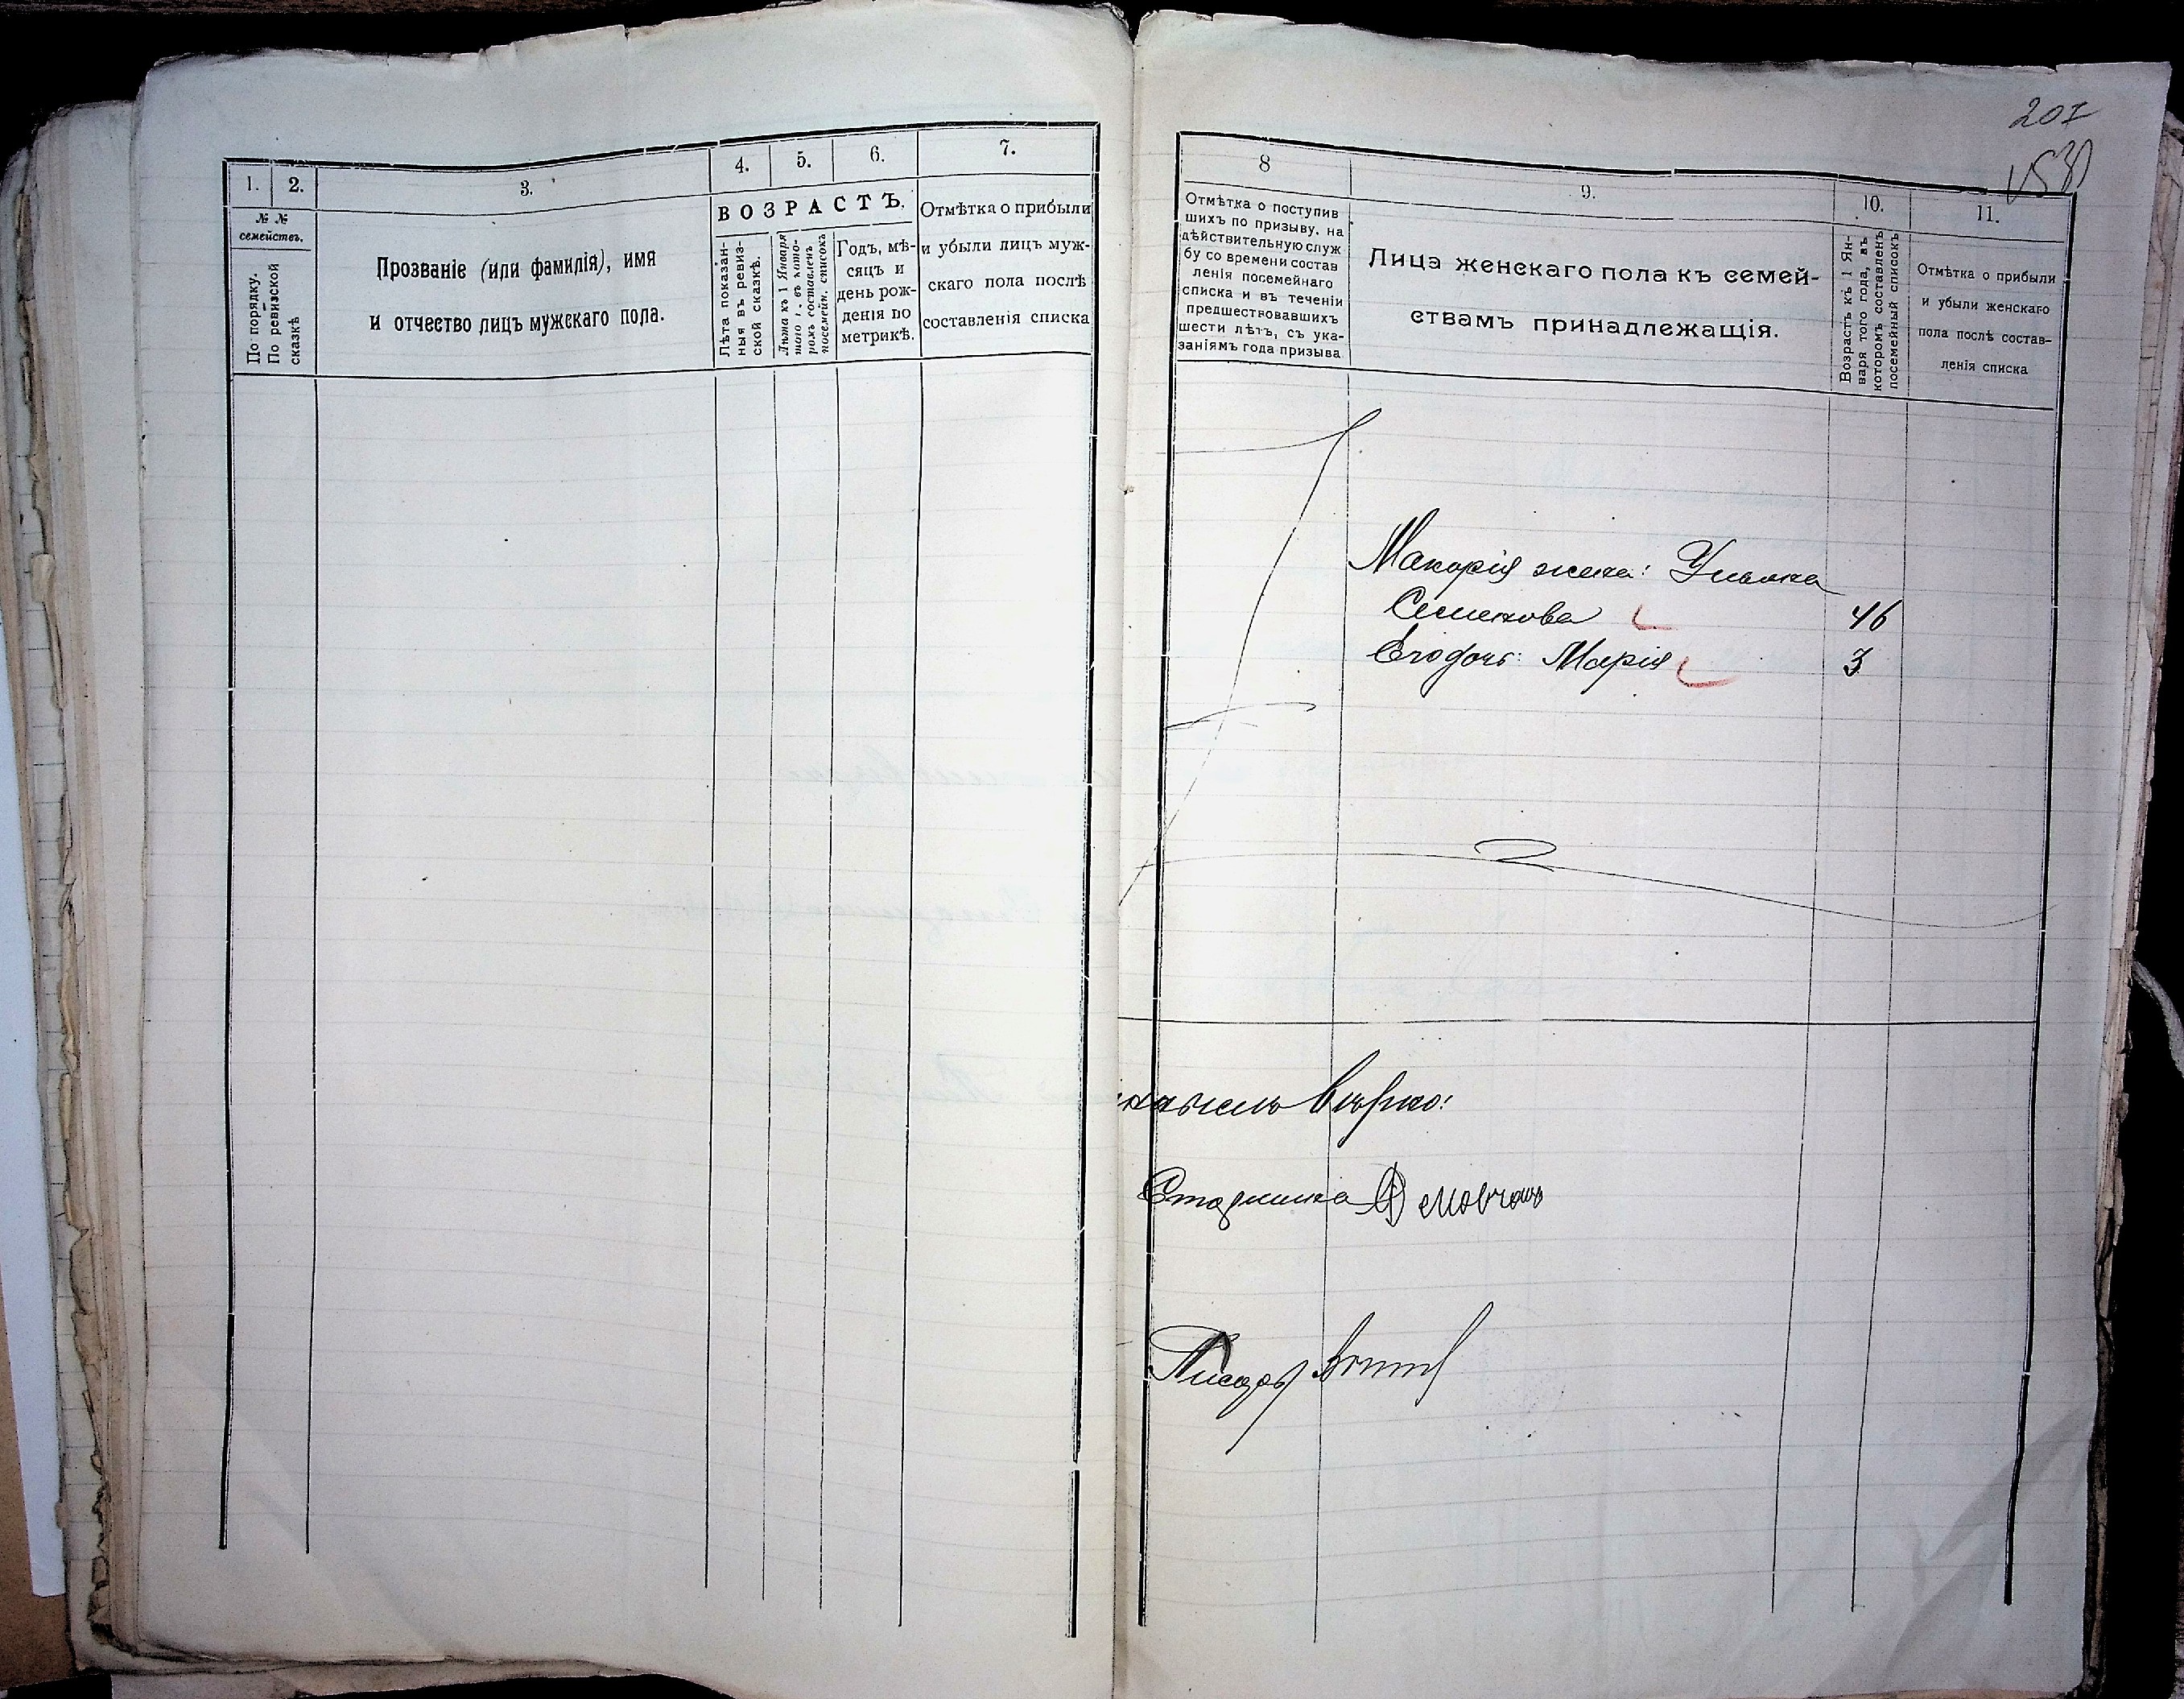 1.
2.
3.
4.
5.
6.
7.
№ №
семействъ.
По порядку.
По ревизской
сказкѣ
Прозваніе (или фамилія), имя
и отчество лицъ мужскаго пола.
ВОЗРАСТЪ.
Лѣта показан-
ныя въ ревиз-
ской сказкѣ.
Лѣта къ 1 Января
того г., въ кото-
ромъ составленъ
посемейн. списокъ
Годъ, мѣ-
сяцъ и
день рож-
денія по
метрикѣ.
Отмѣтка о прибыли
и убыли лицъ муж-
скаго пола послѣ
составленія списка
201
8
9.
10.
11.
Отмѣтка о поступив
шихъ по призыву, на
дѣйствительную служ
бу со времени состав
ленія посемейнаго
списка и въ теченіи
предшествовавшихъ
шести лѣтъ, съ ука-
заніямъ года призыва
Лица женскаго пола къ семей-
ствамъ принадлежащія.
Возрастъ къ 1 Ян-
варя того года, въ
которомъ составленъ
посемейный списокъ
Отмѣтка о прибыли
и убыли женскаго
пола послѣ состав-
ленія списка
Макорія жена: Ульяна
Семенова 46
Его дочь: Марія 3
вѣрно:
Старшина
Писарь